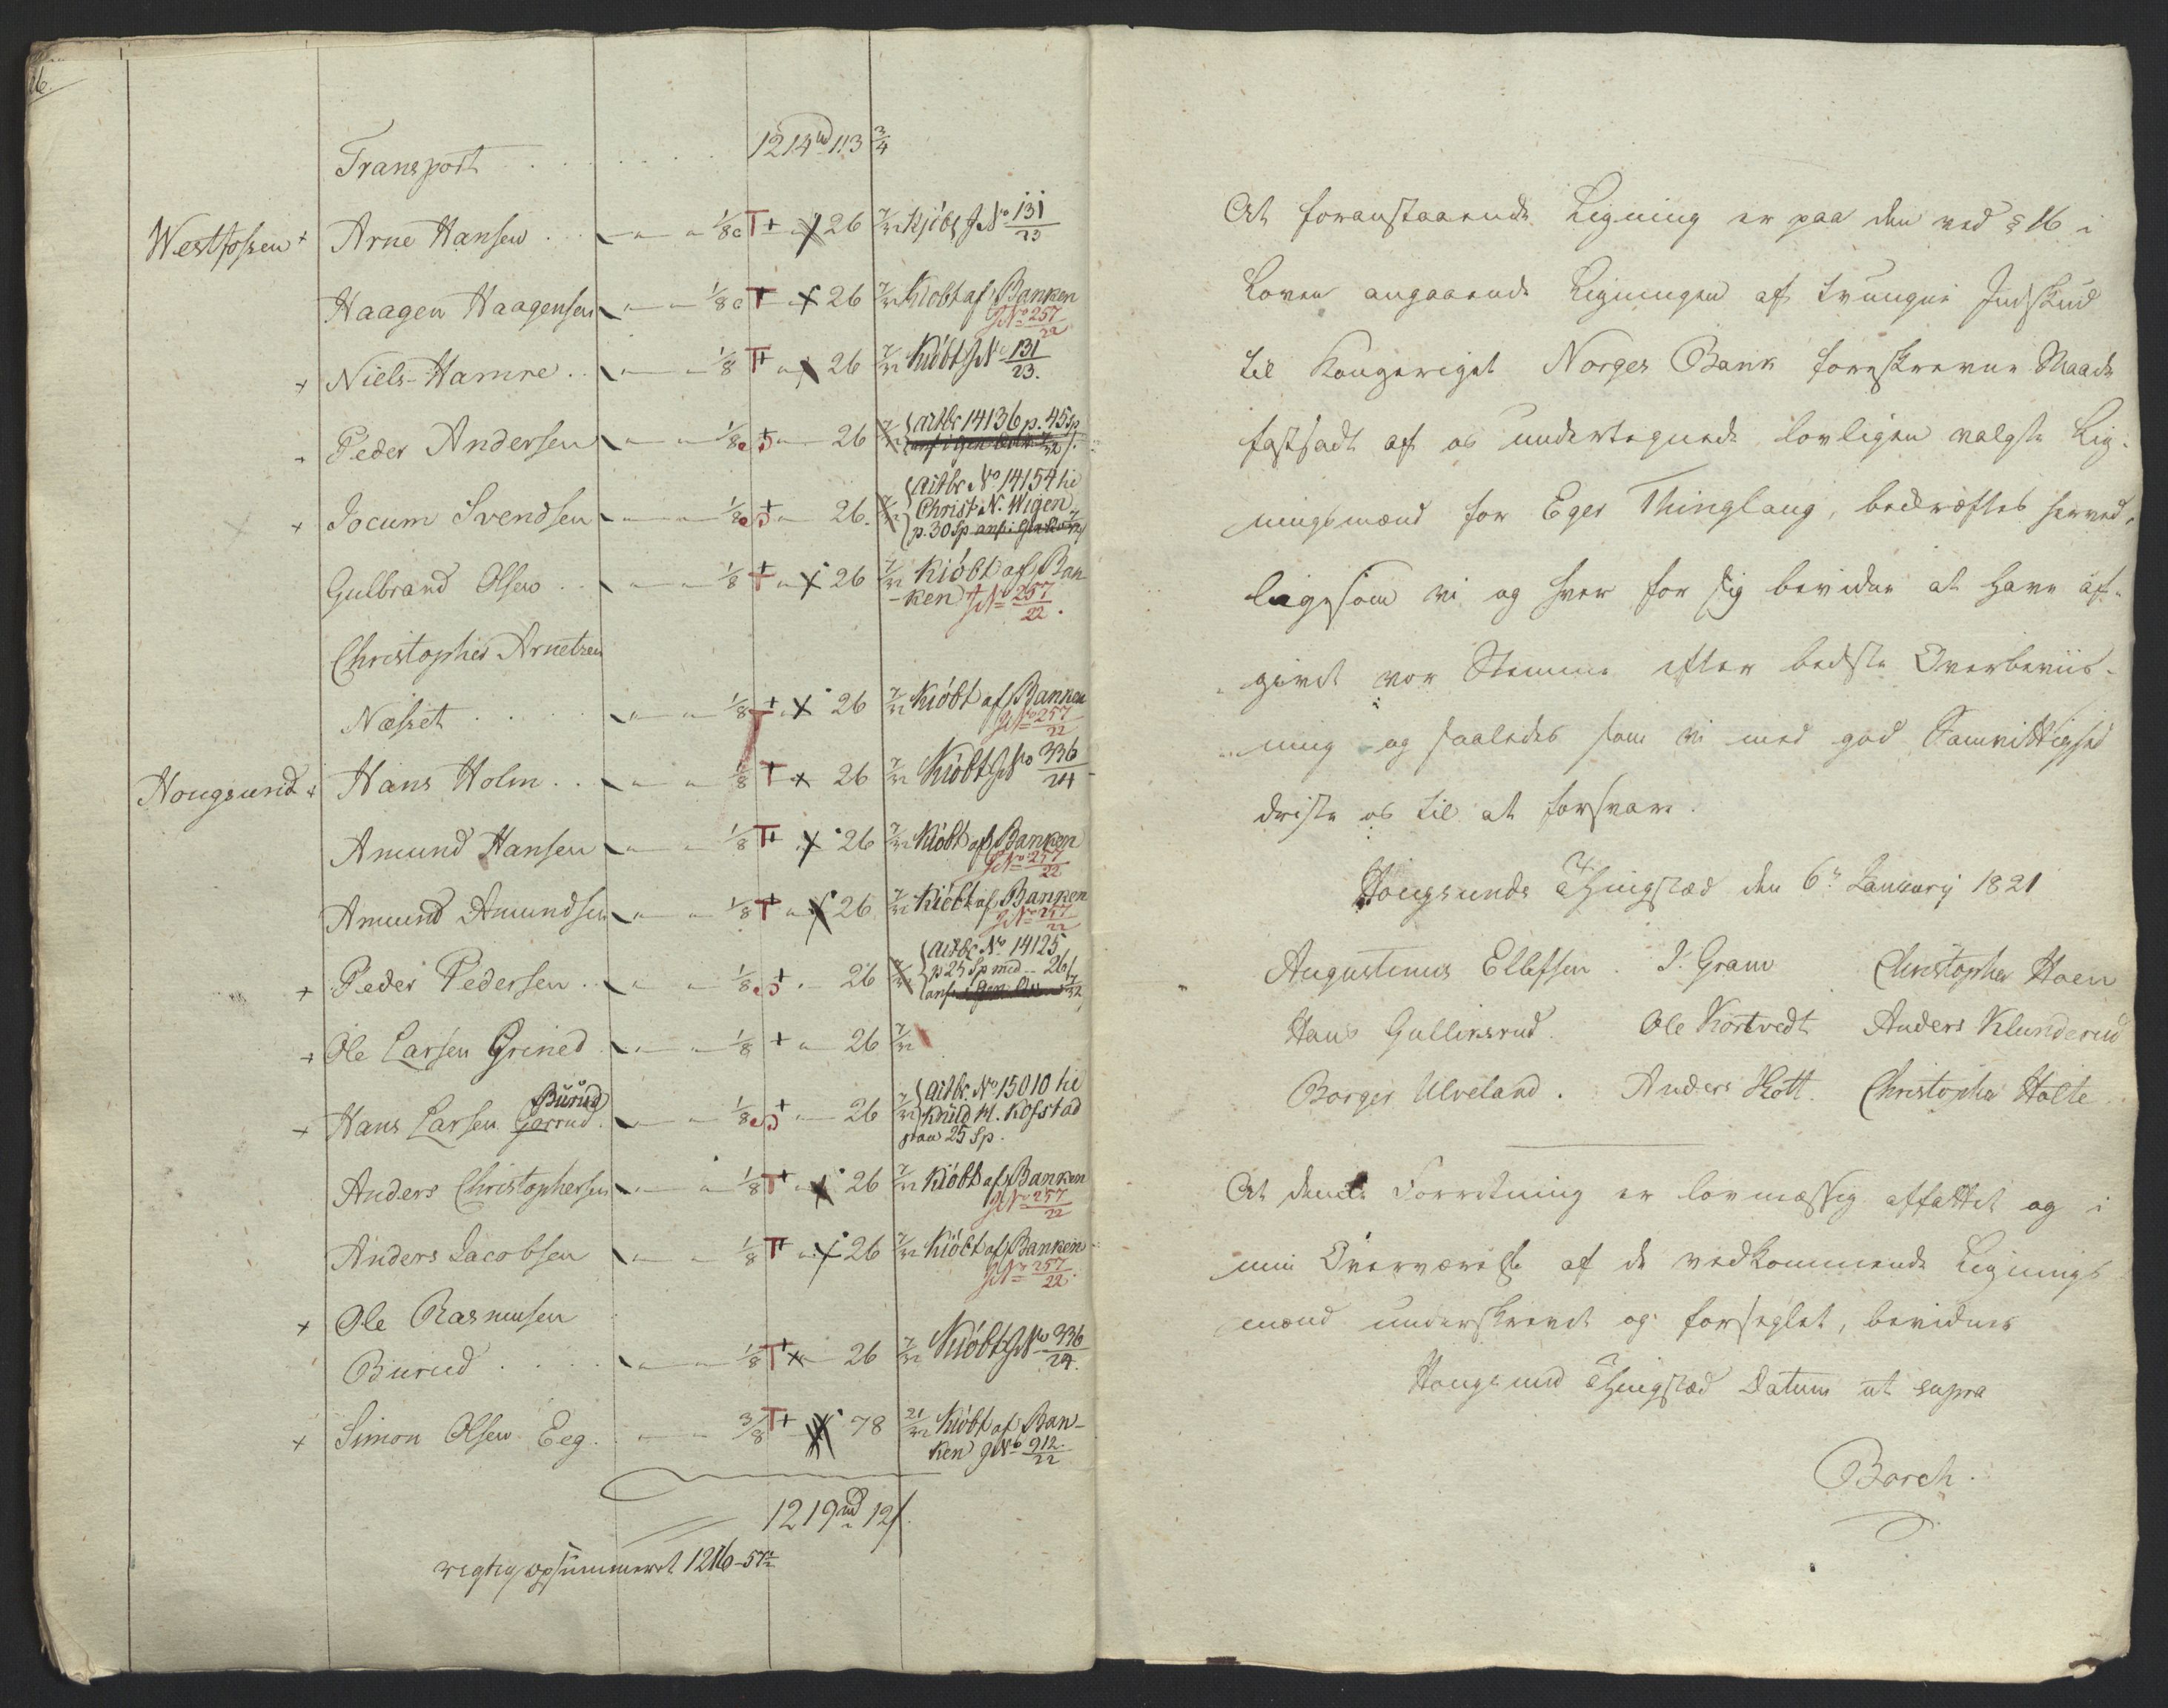 26.
Transport . . . . . . 1214 113 3/4
Westfossen + Arne Hansen . . 1/8 T + 26 7/12 Kjöbt JNo 131/23
Haagen Haagensen 1/8 T 26 7/12 Kiöbt af Banken JNo 257/22
+ Niels Hamre . . 1/8 T+ 26 7/12 Kiöbt JNo 131/23.
Peder Andersen 1/8 + 26 {aitbr 14136 p. 45 Sp
+ Jocum Svendsen 1/8 + 26. {aitbr. No 14154 til
Christ. N. Wigen
p. 30 Sp
Gulbrand Olsen . . 1/8 T + 26 7/12 Kiöbt af Ban
-ken JNo 257/22.
Christopher Arnetzen
Næsset . . . . 1/8 T + 26 7/12 Kiöbt af Banken JNo 257/22
Hougsund + Hans Holm . . 1/8 T + 26 7/12 Kiöbt JNo 336/24
Amund Hansen 1/8 T+ 26 7/12 Kiöbt af Banken JNo 257/22
Amund Amundsen 1/8 T+ 26 7/12 Kiöbt af Banken JNo 257/22
+ Peder Pedersen . . 1/8 + 26 {aitbr No. 14125
p 25 Sp med - 26
+ Ole Larsen Grined 1/8 + 26 7/12
+ Hans Larsen Gorrud Burud 1/8 + 26 7/12 {aitbr. No 15010 til
Knud M. Kofstad
paa 25 Sp.
Anders Christophersen 1/8 T+ 26 7/12 Kiöbt af Banken JNo 257/22
Anders Jacobsen 1/8 T+ 26 7/12 Kiöbt af Banken JNo 257/22.
+ Ole Rasmusen
Burud . . . . 1/8 T+ 26 7/12 Kiöbt JNo 336/24.
+ Simon Olsen Eeg . 3/8 T+ 78 21/12 Kiöbt af Ban-
ken JNo 912./22
1219 121.
rigtig opsummeret 1216-57 1/2
At foranstaaende Ligning er paa den ved § 16 i
Loven angaaende Ligningen af tvungne Indskud
til Kongeriget Norges Bank foreskrevne Maade
fastsadt af os undertegnede lovligen valgte Lig-
ningsmænd for Eger Thinglaug, bekræftes herved,
ligesom vi og hver for sig bevidne at have af-
givet vor Stemme efter bedste Overbeviis-
ning og saaledes som vi med god Samvittighed
driste os til at forsvare.
Hougsunds Thingsted den 6te January 1821
Augustinus Ellefsen. I. Gram Christopher Hoen
Hans Gulliksrud. Ole Kortvedt Anders Klunderud
Borger Ulveland. Anders Hott. Christopher Holte.
At denne Forretning er lovmæssig affattet og i
min Overværelse af de vedkommende Lignings
mænd underskrevet og forseglet, bevidnes
Hougsund Thingsted Datum ut supra
Borch.